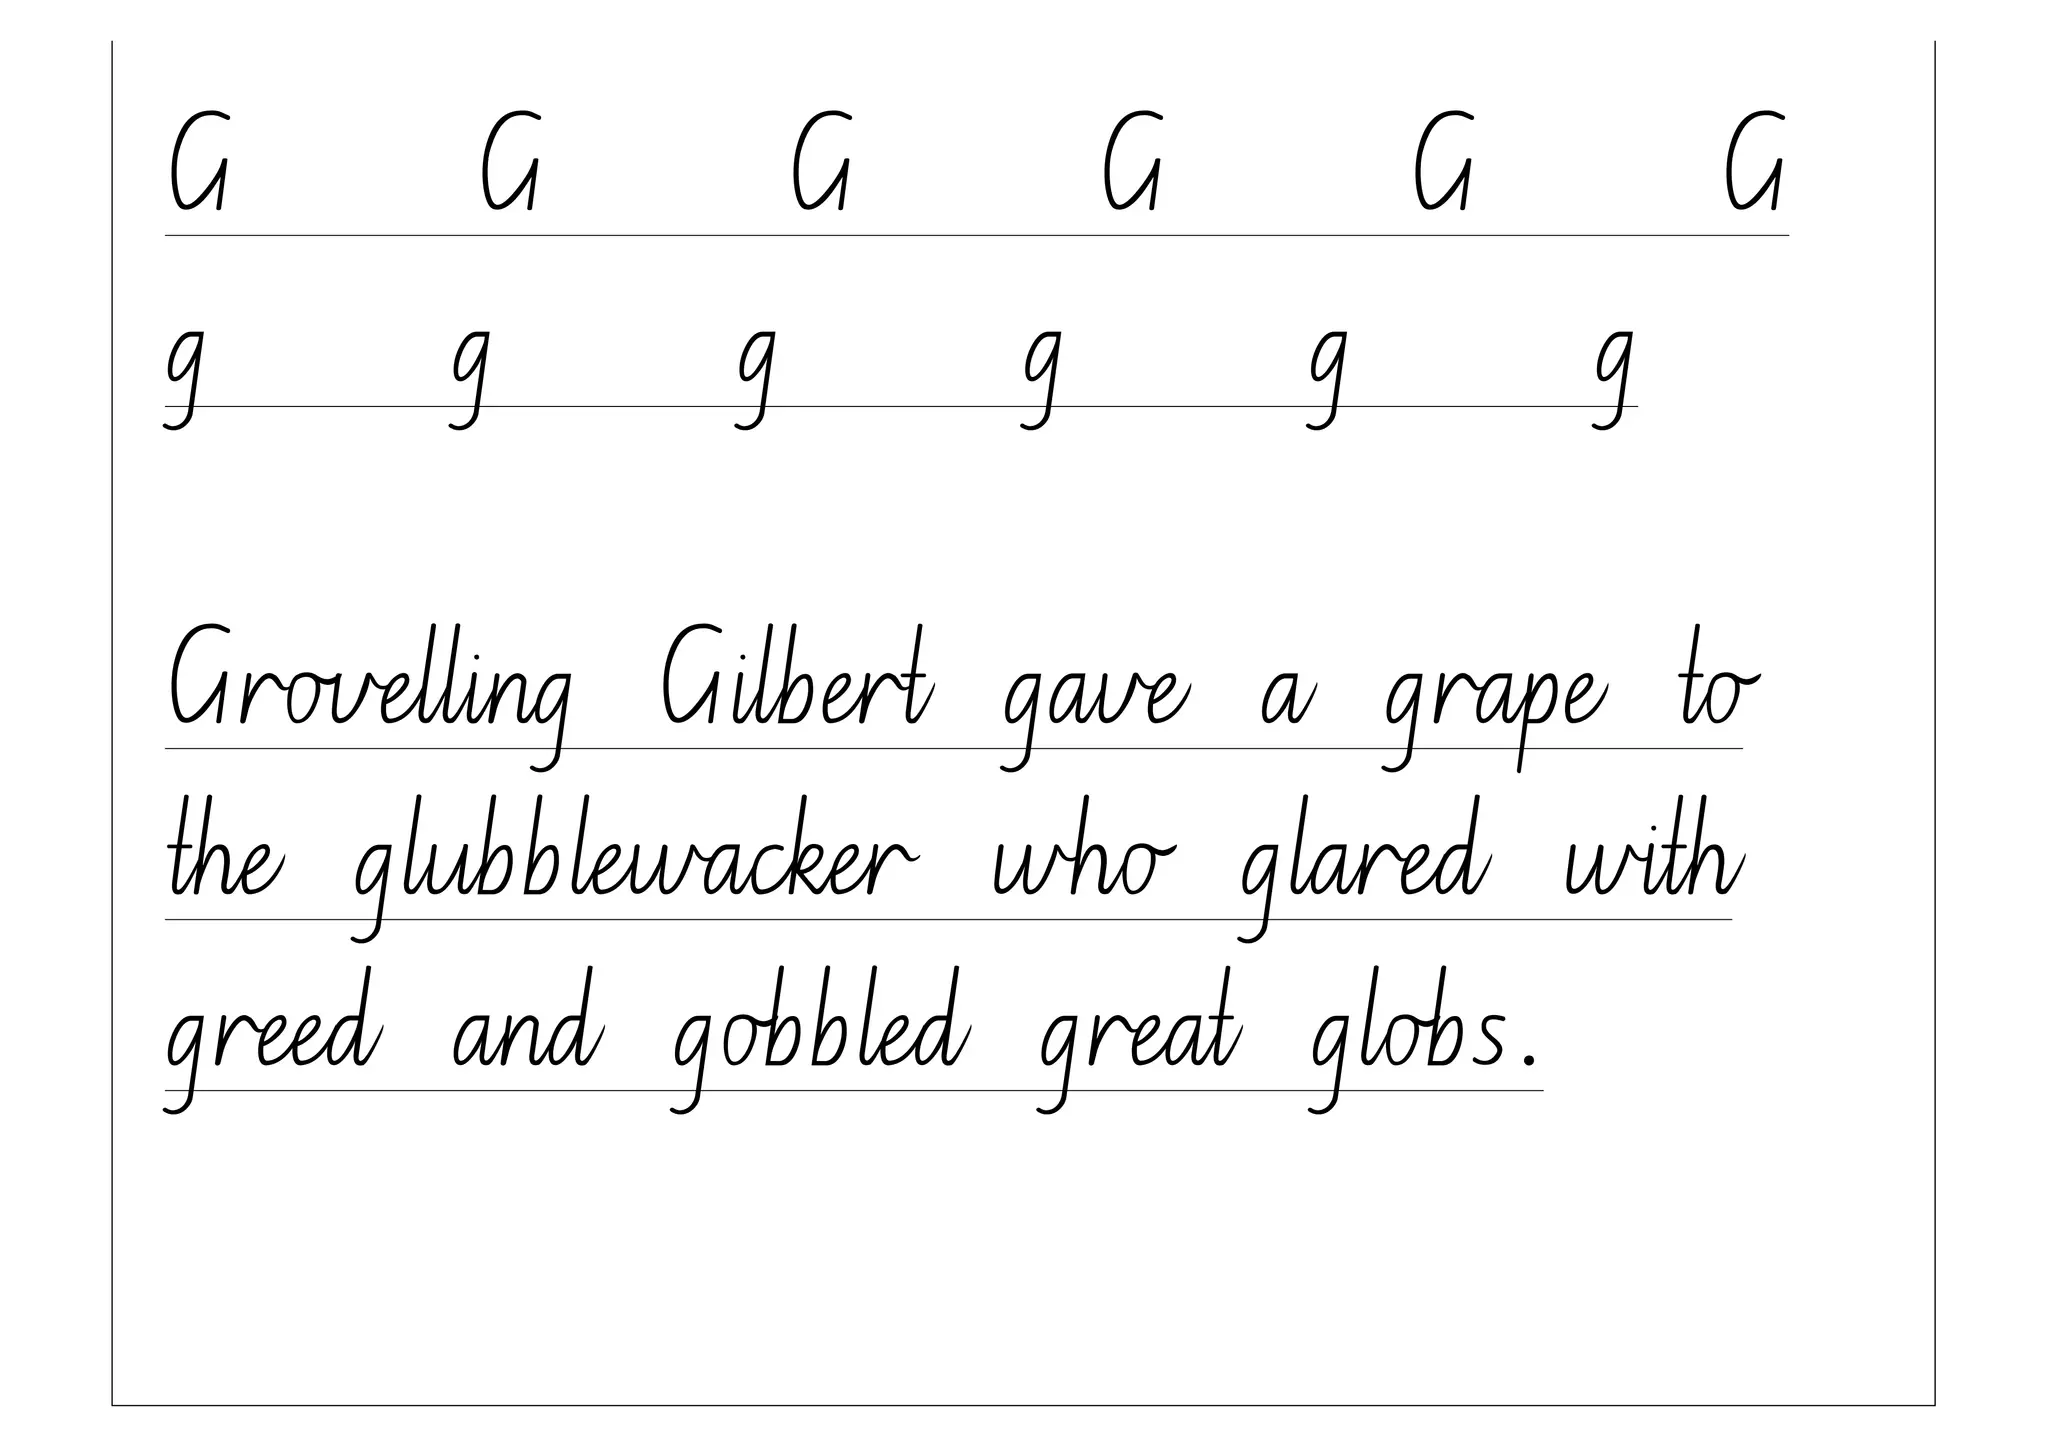 G G G G G G
g g g g g g
Grovelling Gilbert gave a grape to
the glubblewacker who glared with
greed and gobbled great globs.